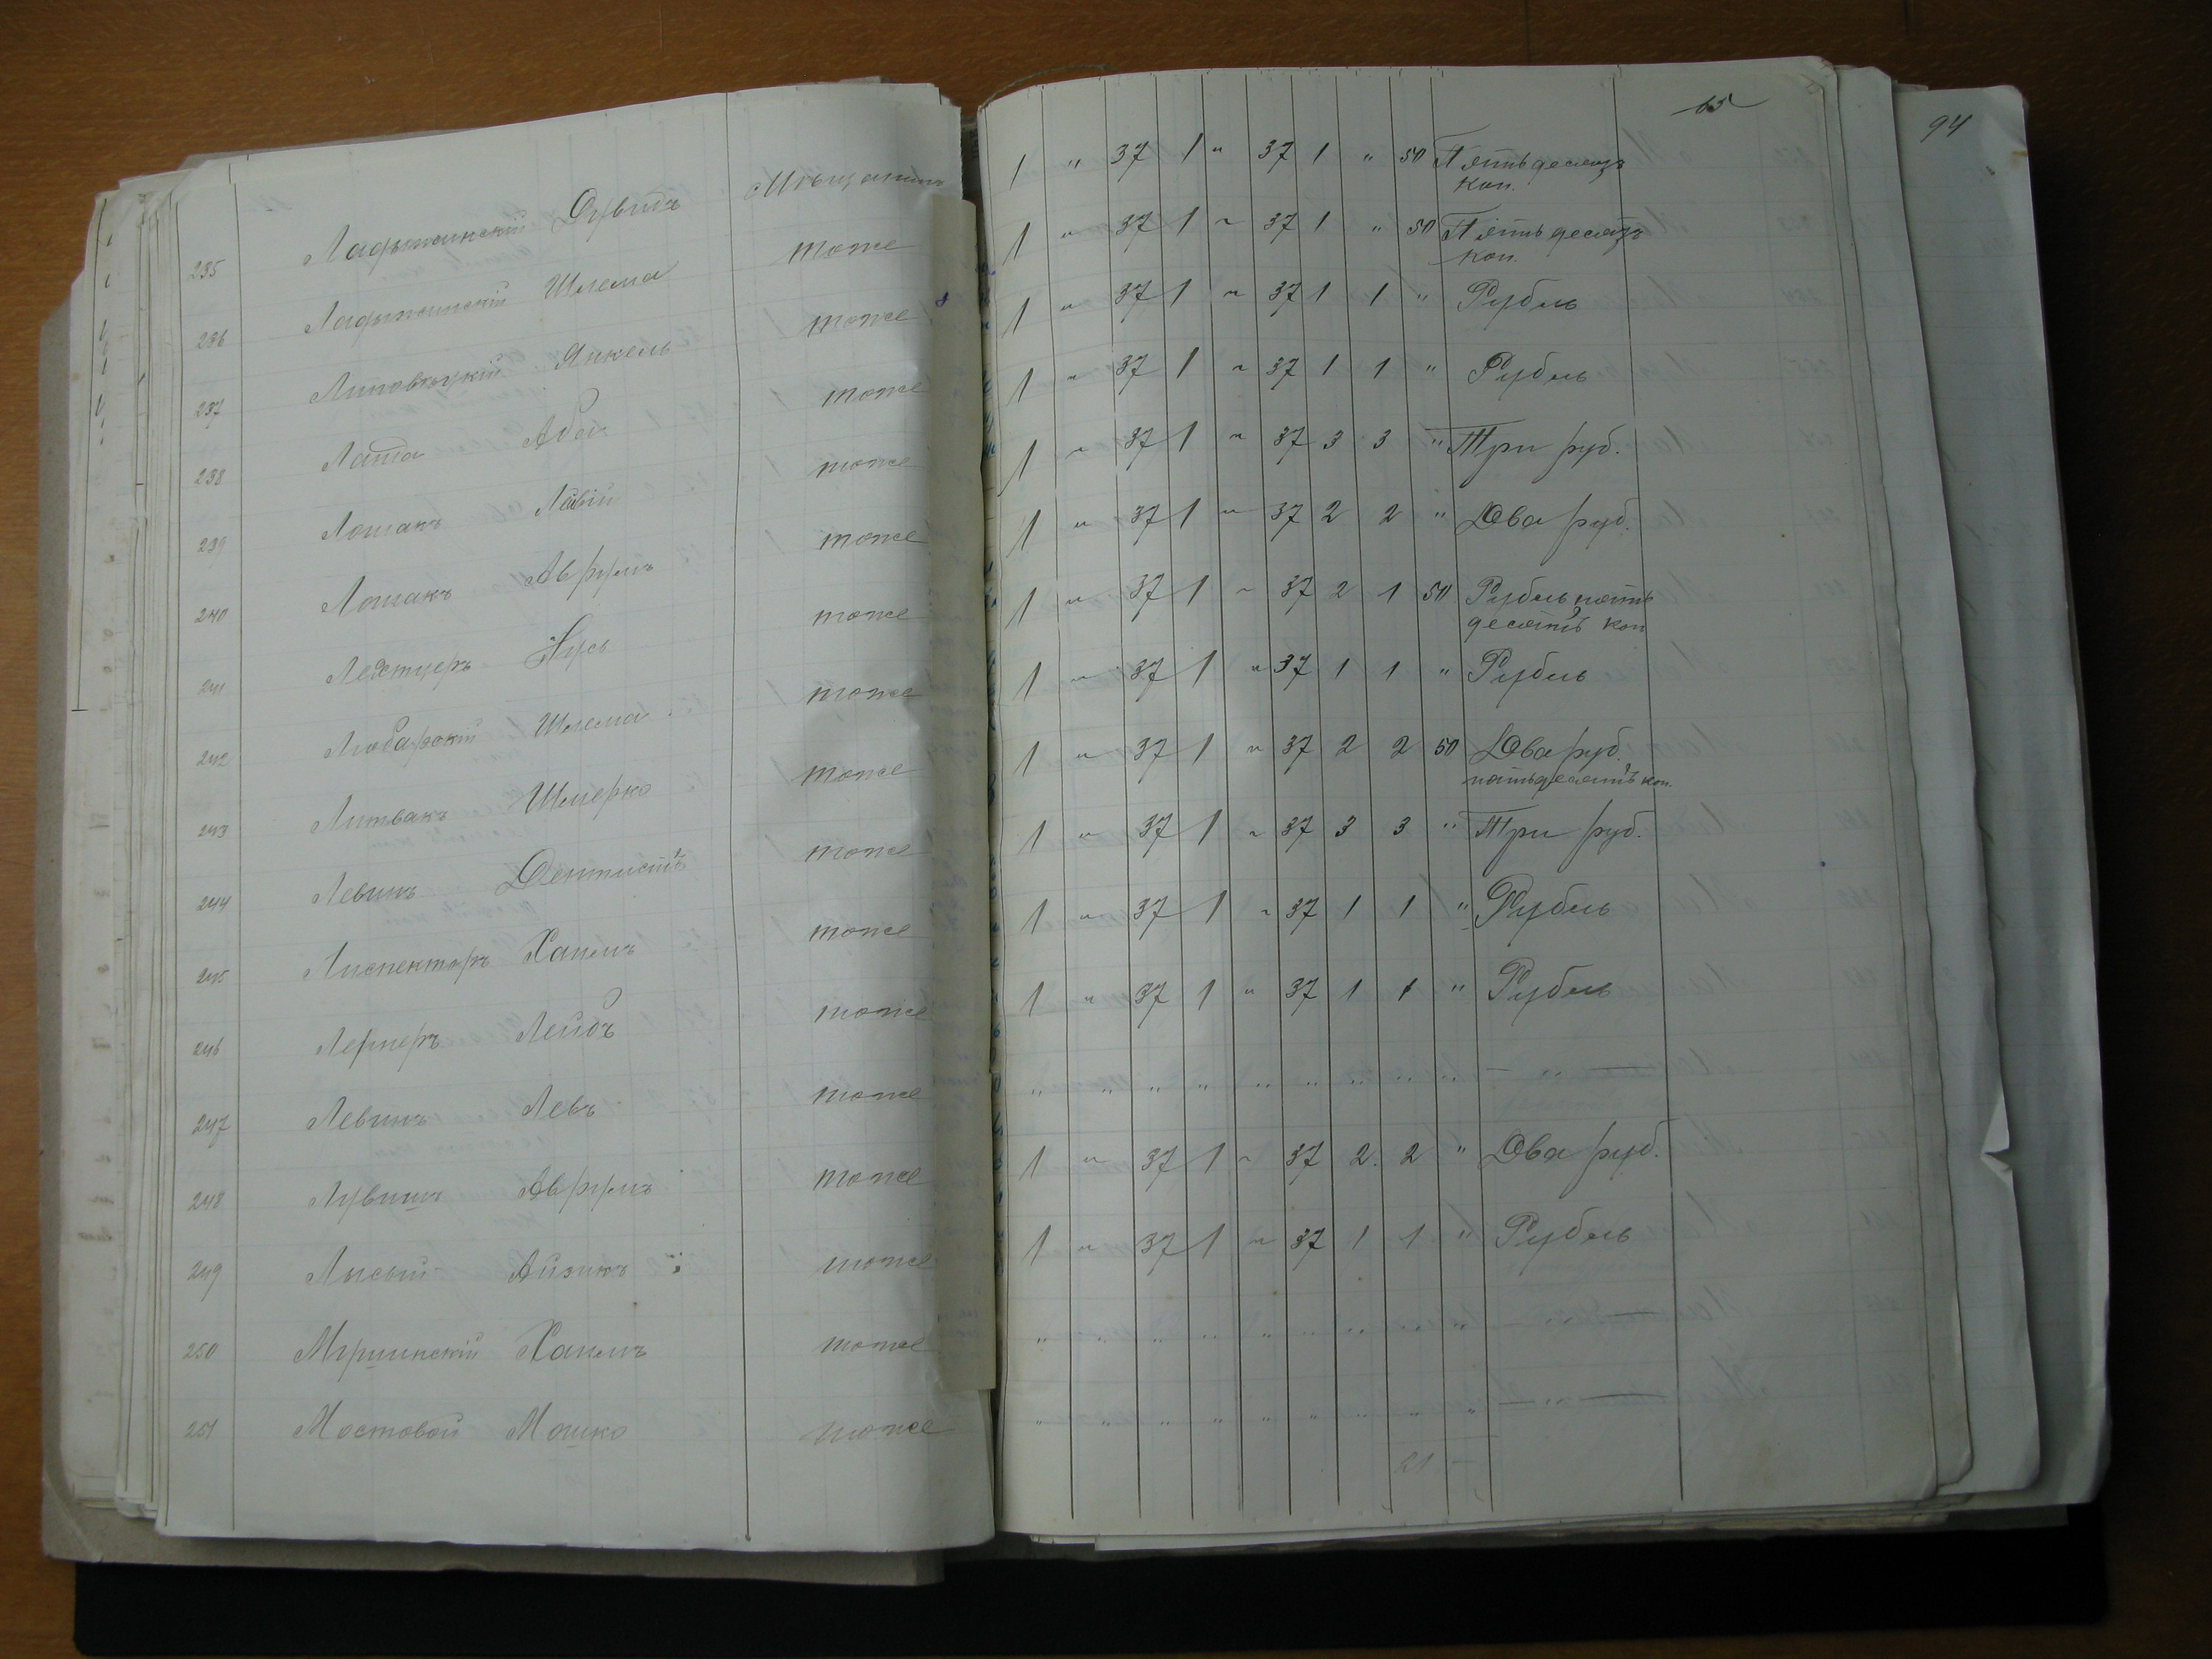 235 Ладыжинскій Дувидъ Мѣщанинъ
236 Ладыжинскій Шлема тоже
237 Липовецкій Янкель тоже
238 Лата Аба тоже
239 Лошакъ Лейвій тоже
240 Лошакъ Аврумъ тоже
241 Лехтцеръ Нусь тоже
242 Любарскій Шлема тоже
243 Литвакъ Шмерко тоже
244 Левинъ Дентистъ тоже
245 Лиспекторъ Хаимъ тоже
246 Лернеръ Лейбъ тоже
247 Левинъ Левъ тоже
248 Лувишъ Аврумъ тоже
249 Лысый Айзикъ тоже
250 Хаимъ тоже
251 Мостовой Мошко тоже
65
1 " 37 1 " 37 1 " 50 Пятьдесятъ
коп.
1 " 37 1 " 37 1 " 50 Пятьдесятъ
коп.
1 " 37 1 " 37 1 1 " Рубль
1 " 37 1 " 37 1 1 " Рубль
1 " 37 1 " 37 3 3 " Три руб.
1 " 37 1 " 37 2 2 " Два руб.
1 " 37 1 " 37 2 1 50 Рубль пять
десятъ коп
1 " 37 1 " 37 1 1 " Рубль
1 " 37 1 " 37 2 2 50 Два руб.
пятьдесятъ коп.
1 " 37 1 " 37 3 3 " Три руб.
1 " 37 1 " 37 1 1 " Рубль
1 " 37 1 " 37 1 1 " Рубль
" " " " " " " " " — " —
1 " 37 1 " 37 2. 2 " Два руб.
1 " 37 1 " 37 1 1 " Рубль
" " " " " " " " " — " —
" " " " " " " " " — " —
21 —
94